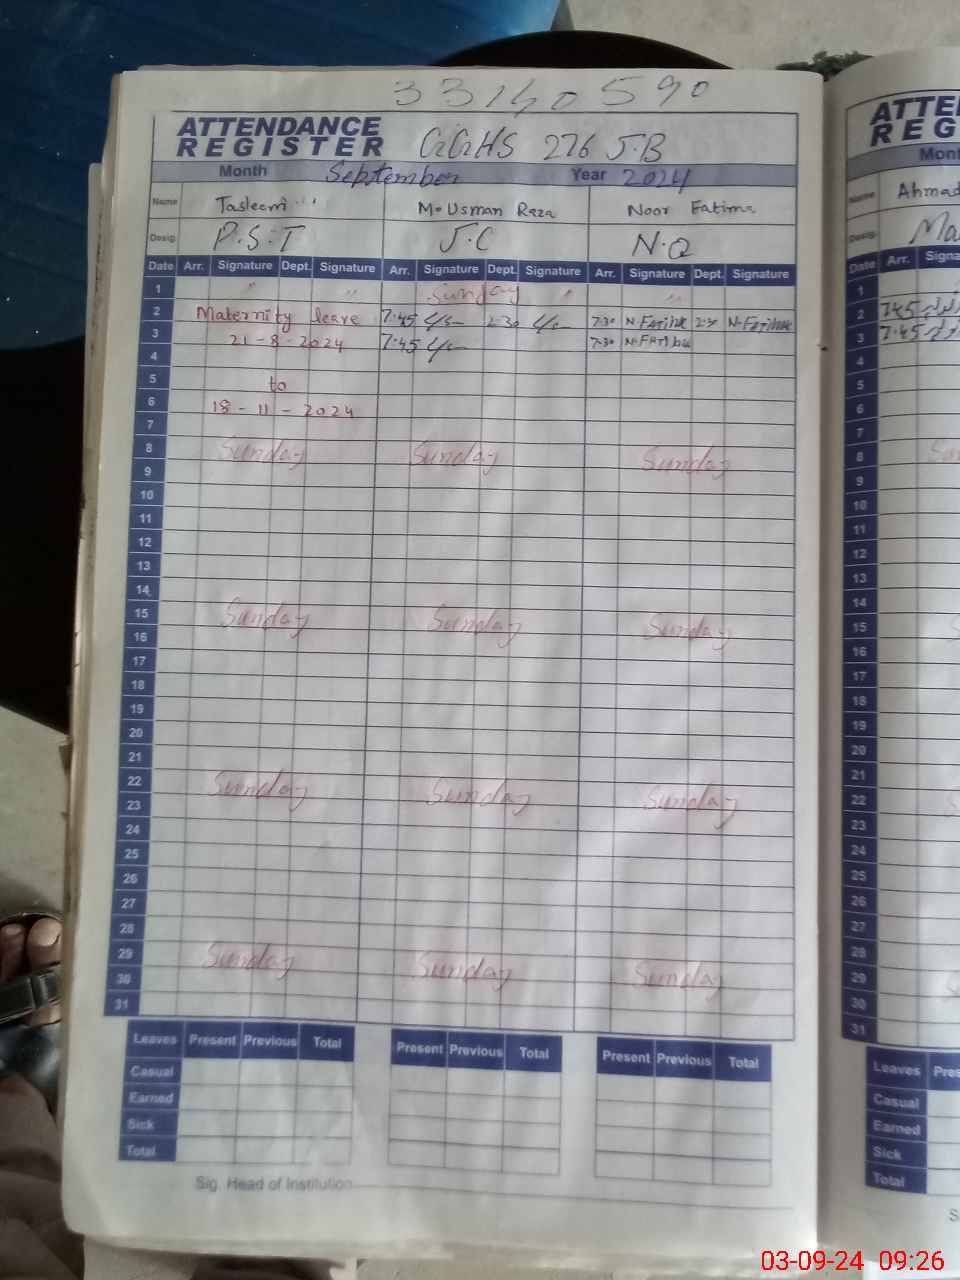 33140590
ATTENDANCE REGISTER GGHS 276 J.B
Month September Year 2024
Name Tasleem M. Usman Raza Noor Fatima
Desig. P.S.T J.C N.Q
Date Arr. Signature Dept. Signature Arr. Signature Dept. Signature Arr. Signature Dept. Signature
1 " " Sunday " "
2 Maternity leave 7:45 2:30 7:30 N.Fatima 2:30 N.Fatima
3 21-8-2024 7:45 7:30 N.Fatima
4
5 to
6 18-11-2024
7
8 Sunday Sunday Sunday
9
10
11
12
13
14
15 Sunday Sunday Sunday
16
17
18
19
20
21
22 Sunday Sunday Sunday
23
24
25
26
27
28
29 Sunday Sunday Sunday
30
31
Leaves Present Previous Total Present Previous Total Present Previous Total
Casual
Earned
Sick
Total
Sig. Head of Institution
ATTE
REG
Mont
Name Ahmad
Desig. Ma
Date Arr. Signa
1
2 7:45
3 7:45
4
5
6
7
8
9
10
11
12
13
14
15
16
17
18
19
20
21
22
23
24
25
26
27
28
29
30
31
Leaves Pres
Casual
Earned
Sick
Total
S
03-09-24 09:26